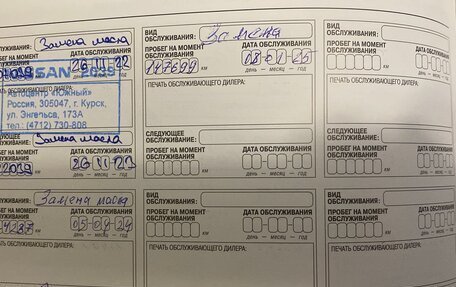 ОБСЛУЖИВАНИЯ: Замена масла
ПРОБЕГ НА МОМЕНТ ОБСЛУЖИВАНИЯ
ДАТА ОБСЛУЖИВАНИЯ
26 11 22
день — месяц — год
NISSAN
ПЕЧАТЬ ОБСЛУЖИВАЮЩЕГО ДИЛЕРА:
Автоцентр «Южный»
Россия, 305047, г. Курск,
ул. Энгельса, 173А
тел.: (4712) 730-808
СЛЕДУЮЩЕЕ ОБСЛУЖИВАНИЕ: Замена масла
ПРОБЕГ НА МОМЕНТ ОБСЛУЖИВАНИЯ
ДАТА ОБСЛУЖИВАНИЯ
26 11 23
день — месяц — год
ОБСЛУЖИВАНИЯ: Замена масла
ПРОБЕГ НА МОМЕНТ ОБСЛУЖИВАНИЯ
ДАТА ОБСЛУЖИВАНИЯ
день — месяц — год
ПЕЧАТЬ ОБСЛУЖИВАЮЩЕГО ДИЛЕРА:
ВИД ОБСЛУЖИВАНИЯ: Замена
ПРОБЕГ НА МОМЕНТ ОБСЛУЖИВАНИЯ
ДАТА ОБСЛУЖИВАНИЯ
км
день — месяц — год
ПЕЧАТЬ ОБСЛУЖИВАЮЩЕГО ДИЛЕРА:
СЛЕДУЮЩЕЕ ОБСЛУЖИВАНИЕ:
ПРОБЕГ НА МОМЕНТ ОБСЛУЖИВАНИЯ
ДАТА ОБСЛУЖИВАНИЯ
км
день — месяц — год
ВИД ОБСЛУЖИВАНИЯ:
ПРОБЕГ НА МОМЕНТ ОБСЛУЖИВАНИЯ
ДАТА ОБСЛУЖИВАНИЯ
км
день — месяц — год
ПЕЧАТЬ ОБСЛУЖИВАЮЩЕГО ДИЛЕРА: